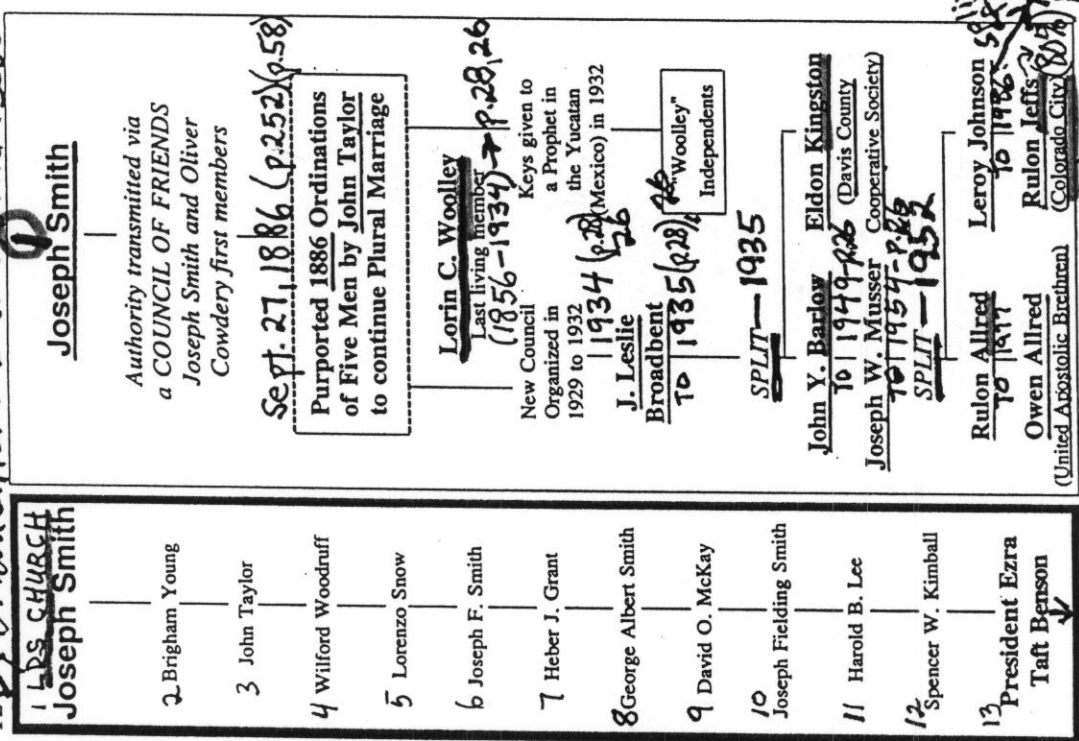 1 LDS CHURCH
Joseph Smith
2 Brigham Young
3 John Taylor
4 Wilford Woodruff
5 Lorenzo Snow
6 Joseph F. Smith
7 Heber J. Grant
8 George Albert Smith
9 David O. McKay
10
Joseph Fielding Smith
11 Harold B. Lee
12
Spencer W. Kimball
13 President Ezra
Taft Benson
1
Joseph Smith
Authority transmitted via
a COUNCIL OF FRIENDS
Joseph Smith and Oliver
Cowdery first members
Sept. 27, 1886 (p.252)(p.58)
Purported 1886 Ordinations
of Five Men by John Taylor
to continue Plural Marriage
Lorin C. Woolley
Last living member
(1856-1934) → p.28,26
New Council
Organized in
1929 to 1932
Keys given to
a Prophet in
the Yucatan
(Mexico) in 1932
1934 (p.28)
26
J. Leslie
Broadbent
TO 1935 (p28), 26
"Woolley"
Independents
SPLIT-1935
John Y. Barlow
TO 1949-p.26
Joseph W. Musser
TO 1954-p.26
Eldon Kingston
(Davis County
Cooperative Society)
SPLIT-1952
Rulon Allred
TO 1977
Owen Allred
(United Apostolic Brethren)
Leroy Johnson
TO 1986
Rulon Jeffs
(Colorado City)